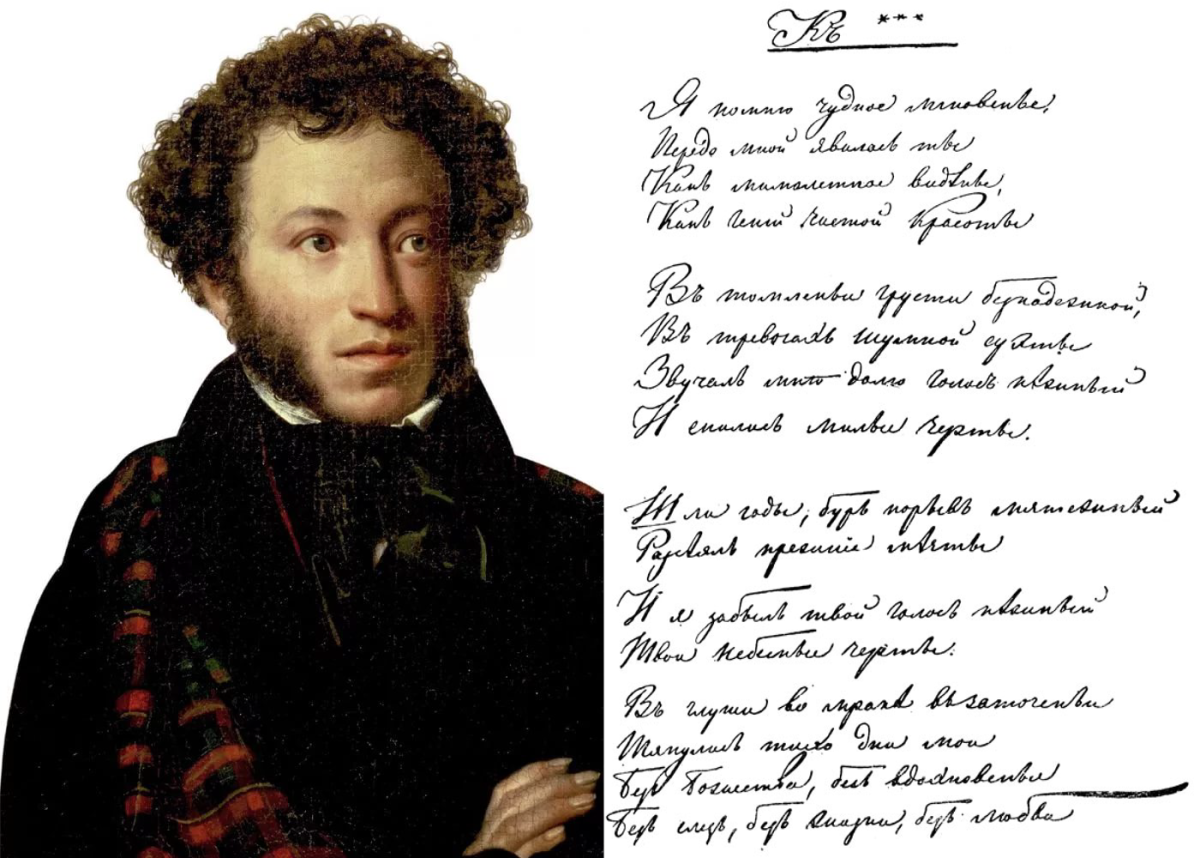 Къ ***
Я помню чудное мгновенье:
Передо мной явилась ты
Какъ мимолетное видѣнье,
Какъ гений чистой красоты
Въ томленьи грусти безнадежной,
Въ тревогахъ шумной суеты
Звучалъ мнѣ долго голосъ нѣжный
И снились милые черты.
Шли годы, бурь порывъ мятежный
Разсѣялъ прежние мѣчты
И я забылъ твой голосъ нѣжный
Твои небесные черты.
Въ глуши во мракѣ въ заточеньи
Тянулись тихо дни мои
Безъ божества, безъ вдохновенья
Безъ слезъ, безъ жизни, безъ любви